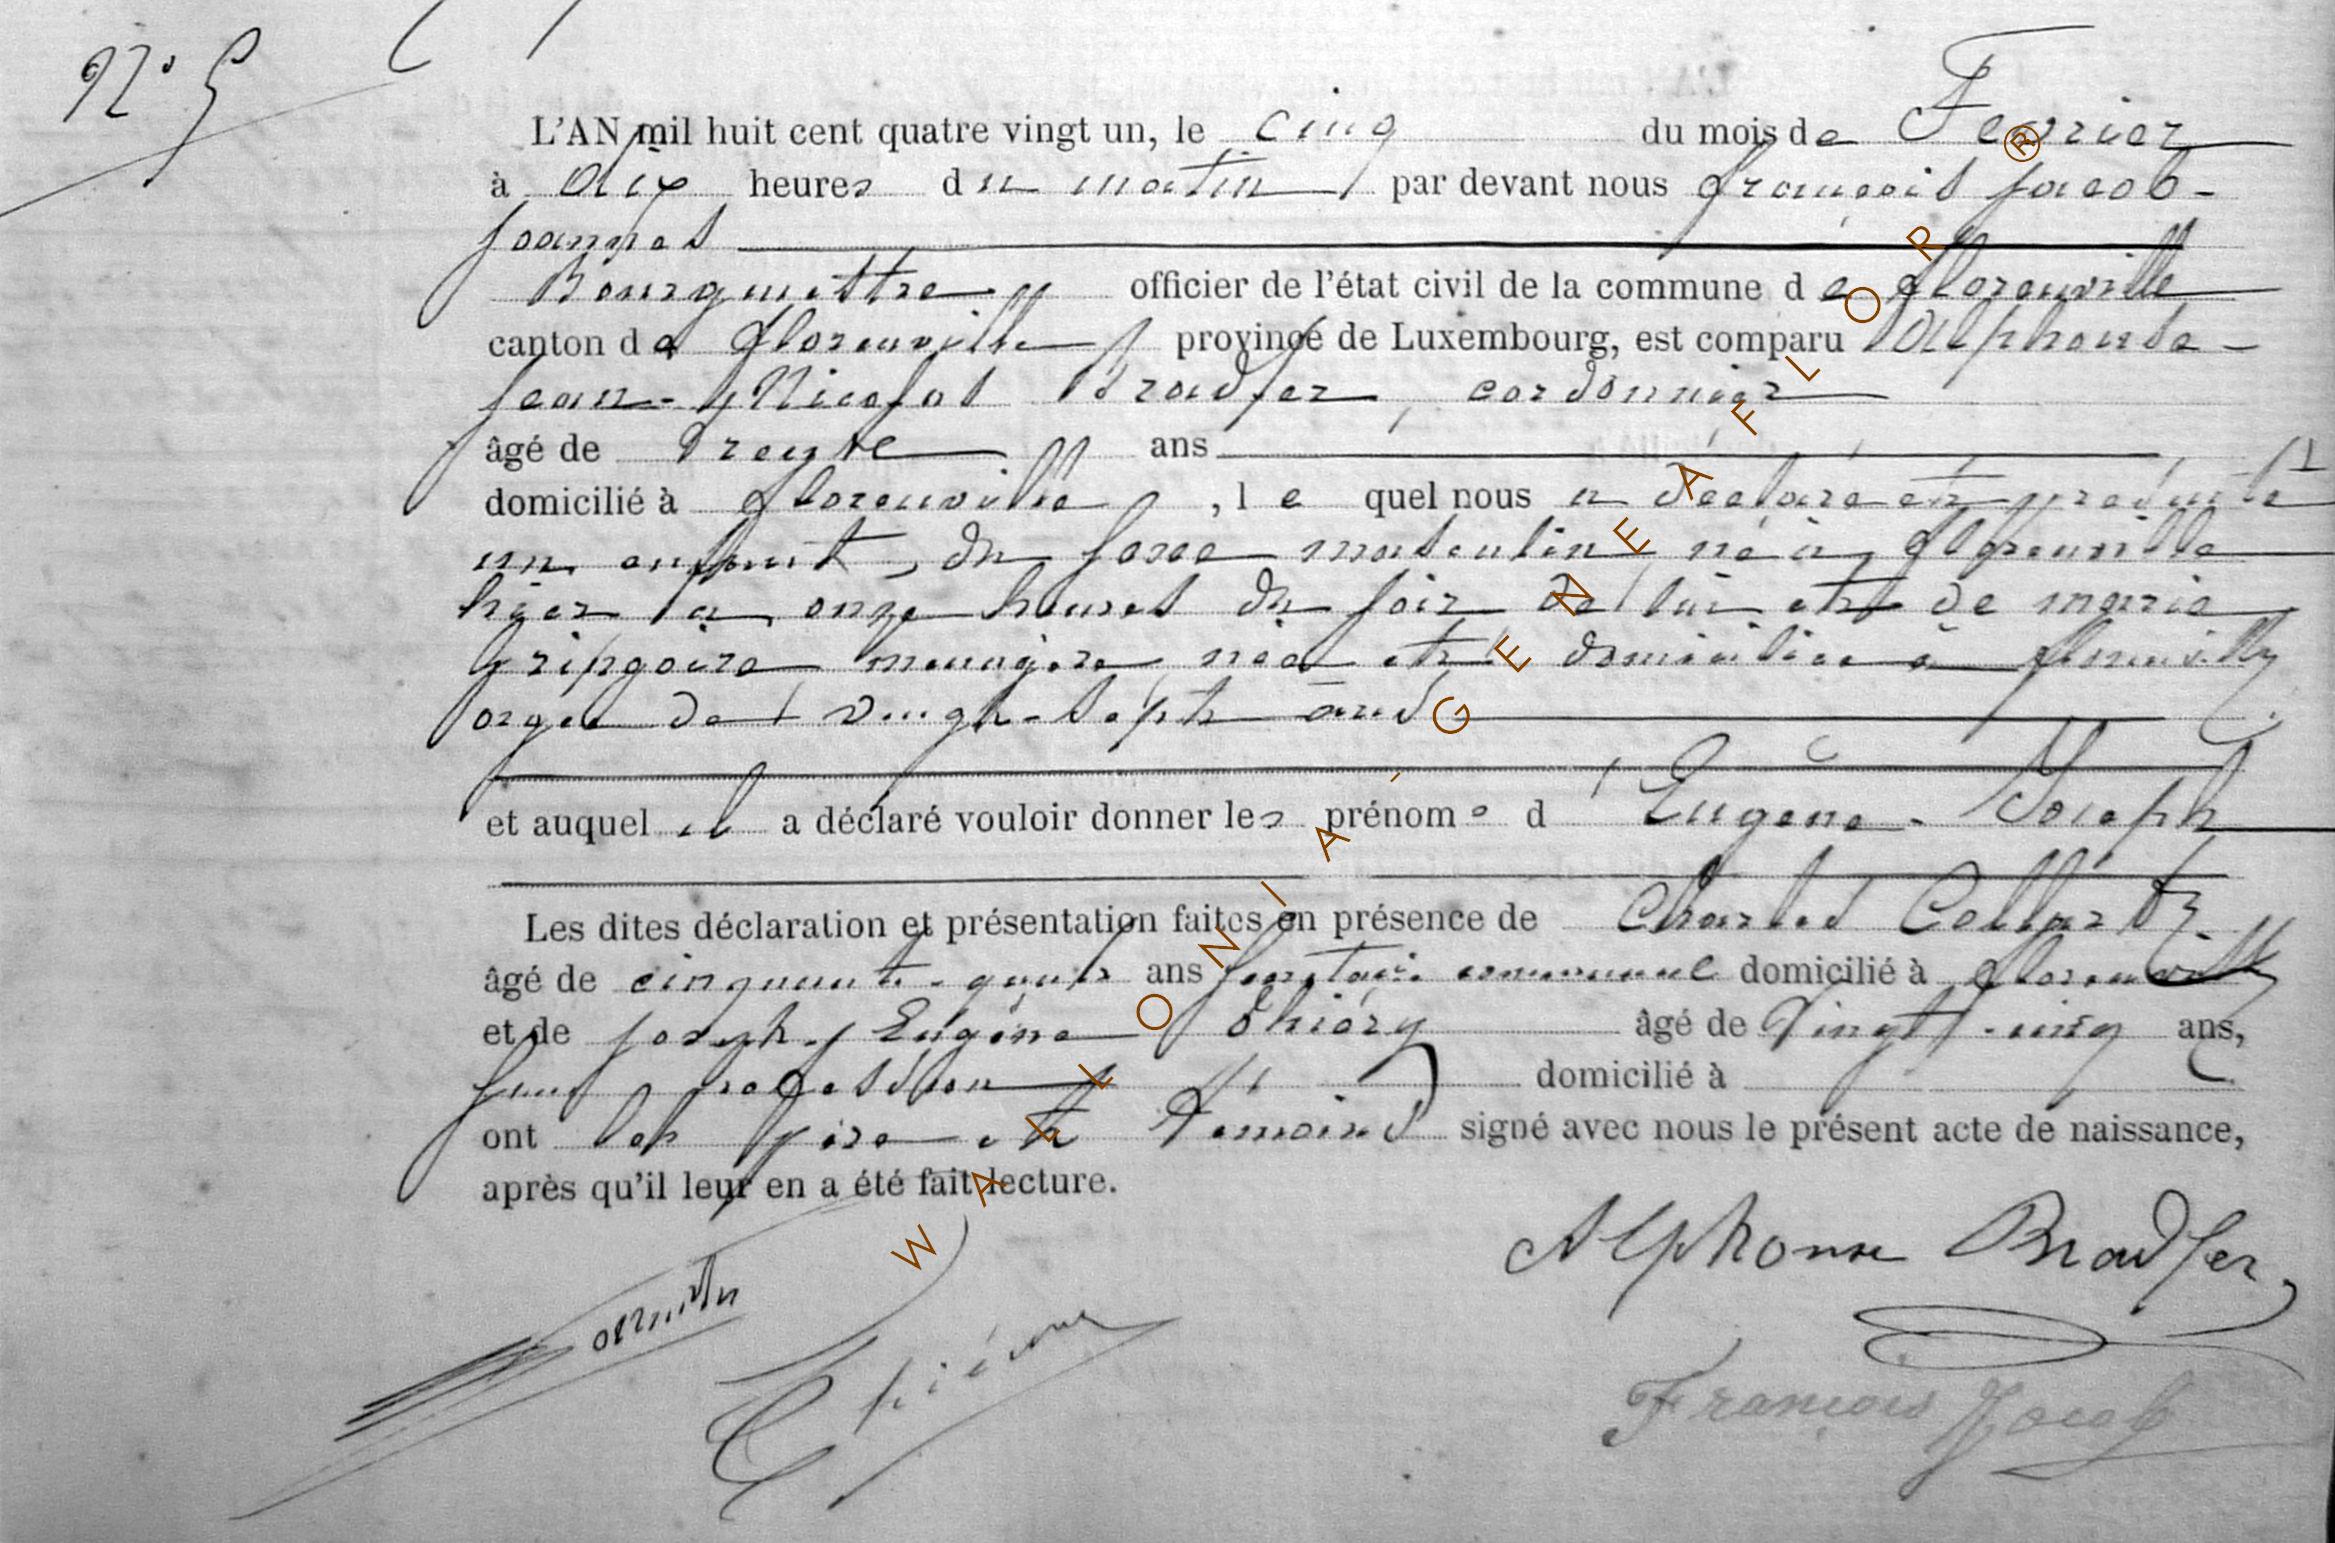 N° 5
L'AN mil huit cent quatre vingt un, le cinq du mois de Fevrier
à dix heures du matin, par devant nous François Jacob-
Joannes
Bourgmettre officier de l'état civil de la commune de Florenville
canton de Florenville, province de Luxembourg, est comparu Alphonse-
Jean-Nicolas Bradfer, cordonnier
âgé de Trente ans
domicilié à Florenville, lequel nous a déclaré et
un enfant, du sexe masculin né à Florenville
hier à onze heures du soir de lui et de marie
Gringoire menagere née et domiciliée à Florenville
agée de vingt-sept ans
et auquel il a déclaré vouloir donner les prénoms d Eugène-Joseph
Les dites déclaration et présentation faites en présence de Charles Collart
âgé de ans communal domicilié à Florenville
et de Joseph-Eugène Thiéry âgé de Vingt-cinq ans,
sans profession domicilié à
ont les père et témoins signé avec nous le présent acte de naissance,
après qu'il leur en a été fait lecture.
Alphonse Bradfer
François Jacob
WALLONIA - GENEAFLOR ®